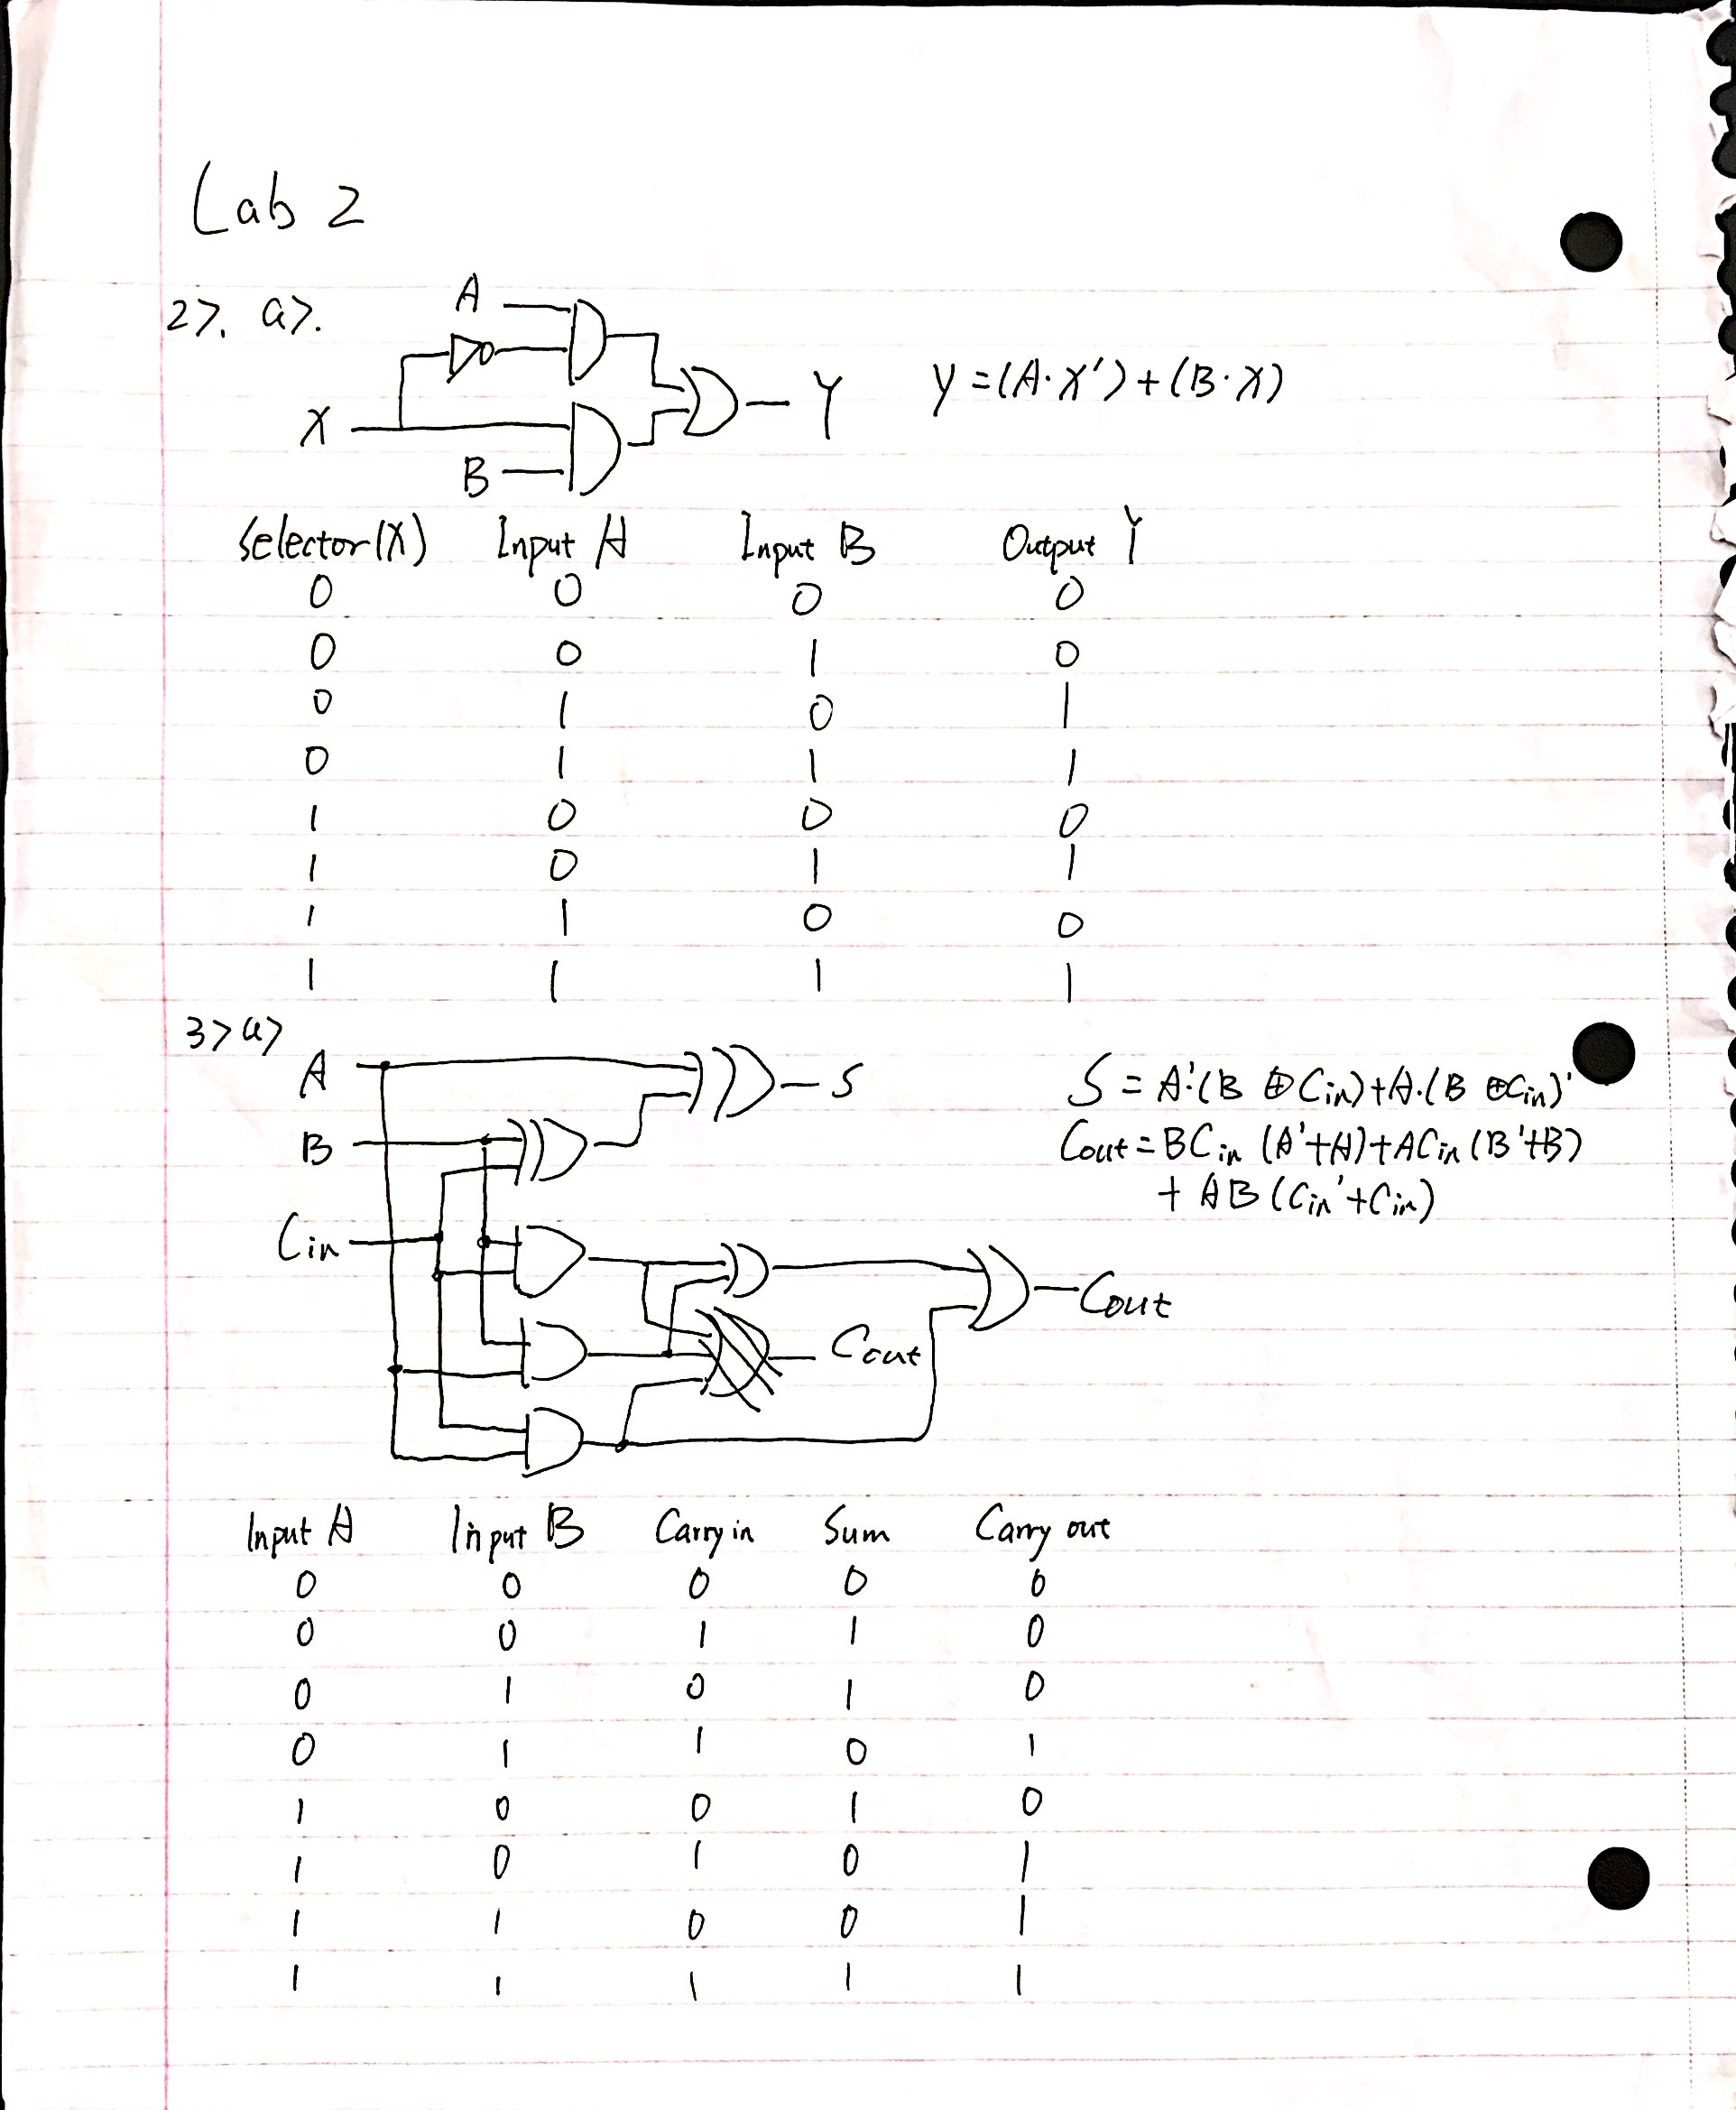 Lab 2
2>. a>.
A
X
B
Y
Y = (A·X') + (B·X)
Selector(X) Input A Input B Output Y
0 0 0 0
0 0 1 0
0 1 0 1
0 1 1 1
1 0 0 0
1 0 1 1
1 1 0 0
1 1 1 1
3> a>
A
B
Cin
S
Cout
Cout
S = A'·(B ⊕ Cin) + A·(B ⊕ Cin)'
Cout = BCin (A'+A) + ACin (B'+B)
+ AB (Cin'+Cin)
Input A Input B Carry in Sum Carry out
0 0 0 0 0
0 0 1 1 0
0 1 0 1 0
0 1 1 0 1
1 0 0 1 0
1 0 1 0 1
1 1 0 0 1
1 1 1 1 1